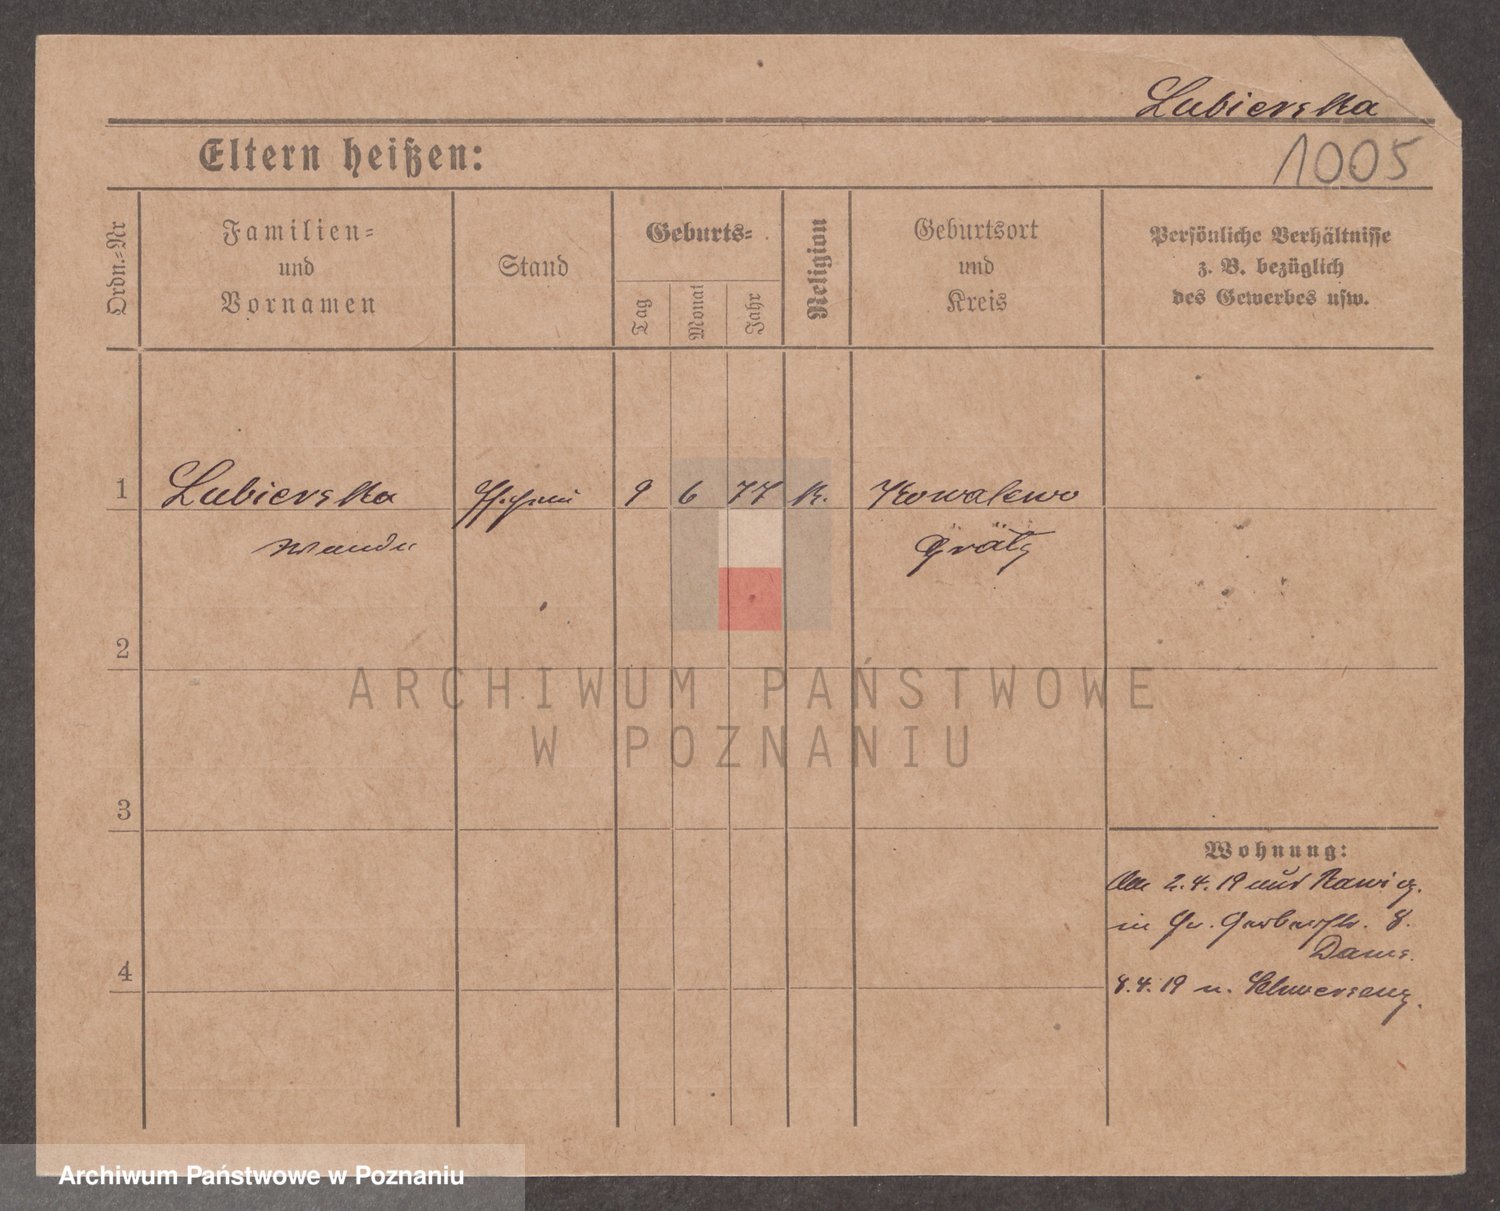 Lubierska
1005
Eltern heißen:
Ordn.=Nr
Familien=
und
Vornamen
Stand
Geburts=
Tag
Monat
Jahr
Religion
Geburtsort
und
Kreis
Persönliche Verhältnisse
z. B. bezüglich
des Gewerbes usw.
1
Lubierska
Wanda
9 6 77 K.
Kowalewo
Grätz
2
ARCHIWUM PAŃSTWOWE
W POZNANIU
3
Wohnung:
2.4.19 aus Rawicz.
in Gr. Gerberstr. 8.
4
8.4.19 n. Schwersenz.
Archiwum Państwowe w Poznaniu